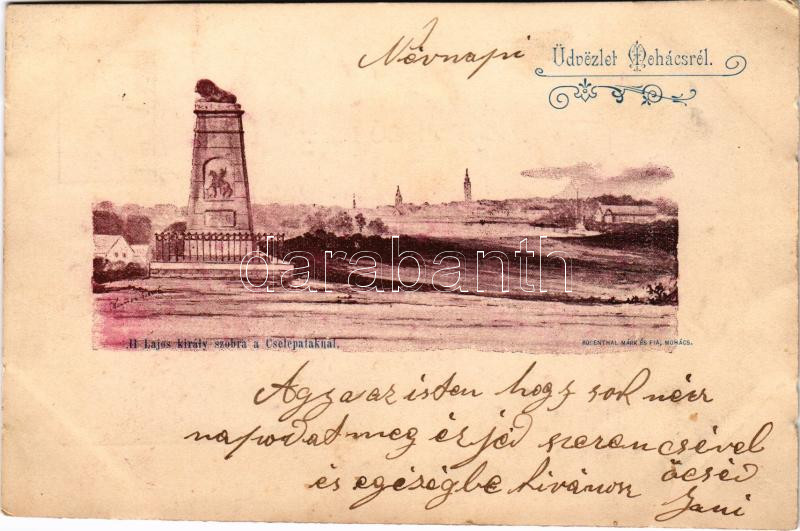 Névnapi
Üdvözlet Mohácsról.
darabanth
II Lajos király szobra a Cselepataknál.
ROSENTHAL MÁRK ÉS FIA, MOHÁCS.
Agya az isten hogy sok név
napodat meg érjéd szerencsével
és egésségbe kivánok öcséd
Jani